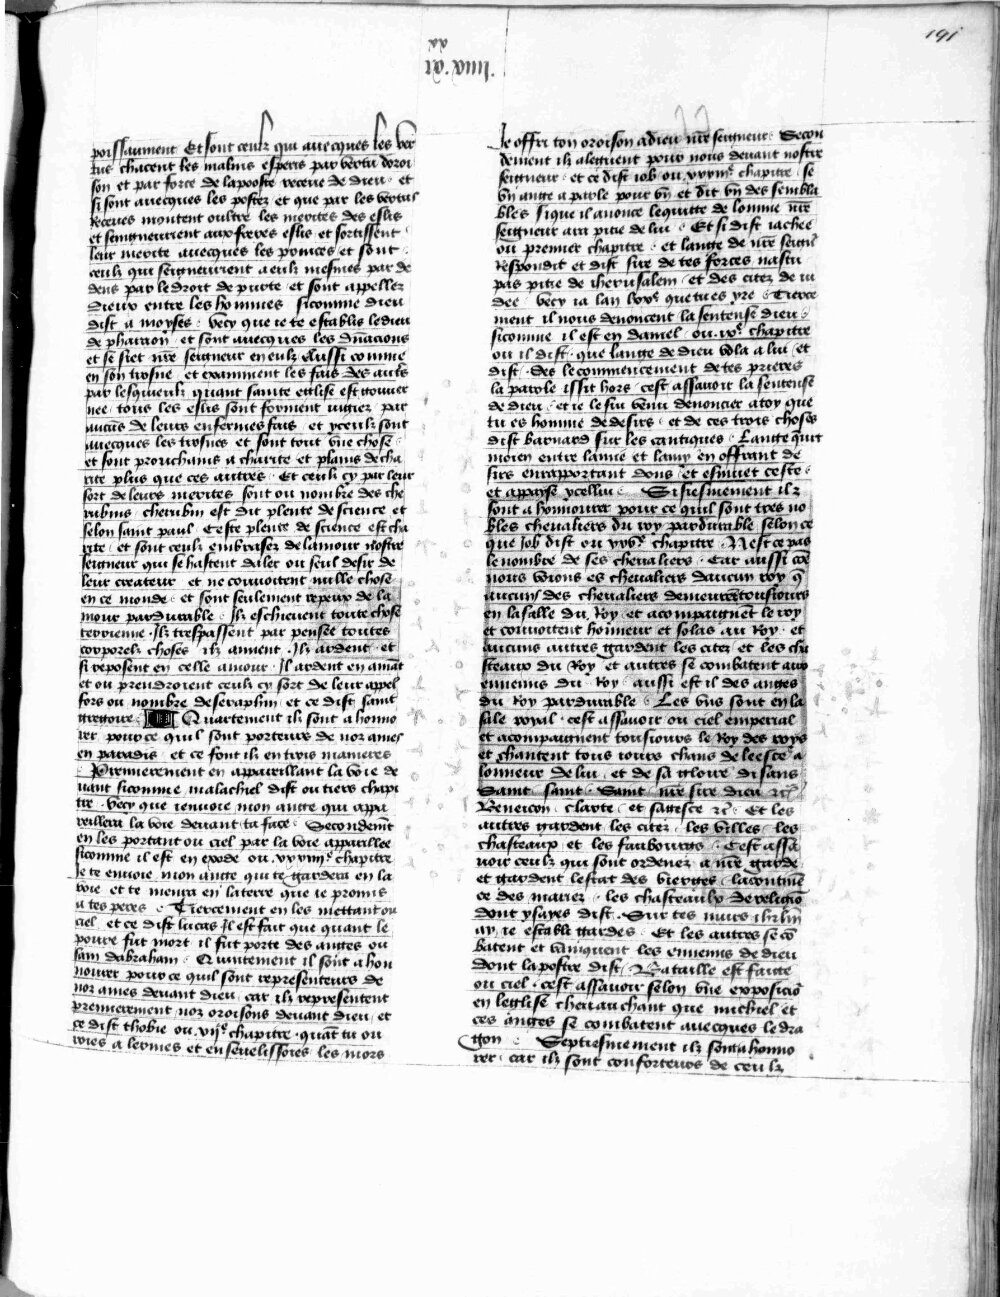 191
poissaument Et sont ceulz qui auecques les ver
tus chacent les malins esperis par vertu doroi
son et par force de lapostre receue de dieu et
si sont auecques les postez et que par les vertus
Receues montent oultre les merites des eslis
et seingneurient aux freres eslis et sortissent
leur merite auecques les princes et sont
ceulz qui seigneurient a eulz mesmes par de
dens par le droit de purte et sont appellez
dieux entre les hommes sicomme dieu
dist a moyses vecy que ie te establis le dieu
de pharaon et sont auecques les dnacions
et se siet nre seigneur en eulz Aussi comme
en son trosne et examinent les fais des autres
par lesquieulz quant sainte eglise est gouuer
nee tous les eslis sont forment iugiez par
aucuns de leurs enfermes fais et yceulz sont
auecques les trosnes et sont tout vne chose
et sont prouchains a charite et plains de cha
rite plus que ces autres Et ceulz cy par leur
sort de leurs merites sont ou nombre des che
rubins cherubin est dit plente de science et
selon saint paul Ceste plente de science est cha
rite et sont ceulz embrasez de lamour nostre
seigneur qui se hastent daler ou seul desir de
leur createur et ne couuoitent nulle chose
en ce monde et sont seulement repeux de la
mour pardurable Ilz eschieuent toute chose
terrienne Ilz trespassent par pensee toutes
corporelz choses ilz aiment Ilz ardent et
si reposent en celle amour Il ardent en amat
et ou prendroient ceulz cy sort de leur appel
fors ou nombre de seraphin et ce dist saint
gregoire Quartement ilz sont a honno
rer pour ce quil sont porteurs de noz ames
en paradis et ce font ilz en trois manieres
Premierement en appareillant la voie de
uant sicomme malachiel dist ou tiers chapi
tre vecy que ienuoie mon ange qui appa
reillera la voie deuant ta face Secondemt
en les portant ou ciel par la voie appareillee
sicomme il est en exode ou xxiije chapitre
Je te enuoie mon ange qui te gardera en la
voie et te menra en la terre que ie promis
a tes peres Tiercement en les mettant ou
ciel et ce dist lucas Il est fait que quant le
poure fut mort il fut porte des anges ou
sain dabraham Quintement il sont a hon
nourer pour ce quil sont representeurs de
noz ames deuant dieu car ilz representent
premierement noz oroisons deuant dieu et
ce dist thobie ou xije chapitre quat tu ou
roies a lermes et en seuelissoies les mors
Je offri ton oroison a dieu nre seigneur Secon
dement ilz aleguent pour nous deuant nostre
seigneur et ce dist iob ou xxxiije chapitre se
vn ange a parle pour vn et dit vn des sembla
bles si que il anonce lequitte de lomme nre
seigneur ara pitie de lui Et si dist iachee
ou premier chapitre et lange de nre seignr
Respondit et dist sire de tes forces nas tu
pas pitie de iherusalem et des citez de iu
dee vecy ia lan lxxe que tu es yre Tierce
ment il nous denoncent la sentense dieu
sicomme il est en daniel ou ixe chapitre
ou il dist que lange de dieu vola a lui et
dist des le commencement de tes prieres
la parole issit hors cest assauoir la sentense
de dieu et ie le sui venu denoncier a toy que
tu es homme de desirs et de ces trois choses
dist barnard sur les cantiques Lange quiert
moien entre lamie et lamy en offrant de
sirs en rapportant dons et esmuet ceste
et appaise ycellui Sisiesmement ilz
sont a honnourer pour ce quil sont tres no
bles cheualiers du roy pardurable selon ce
que Job dist ou xxve chapitre Nest ce pas
le nombre de ses cheualiers Car aussi coe
nous veons es cheualiers daucun roy q
aucuns des cheualiers demeurent tousiours
en la salle du Roy et acompaignent le roy
et couuoitent honneur et solas au Roy et
aucuns autres gardent les citez et les cha
steaux du Roy et autres se combatent aux
ennemis du Roy aussi est il des anges
du Roy pardurable Les vns sont en la
sale royal cest assauoir ou ciel emperial
et acompaignent tousiours le Roy des roys
et chantent tous iours chans de leesce a
lonneur de lui et de sa gloire disans
Saint saint Saint nre sire dieu etc
Beneicon clarte et sagesce etc Et les
autres gardent les citez les villes les
chasteaux et les faubourgs Cest assa
uoir ceulz qui sont ordenez a nre garde
et gardent lestat des vierges lacontine
ce des mariez les chasteaulx de religio
dont ysayes dist Sur tes murs ihrlm
ay ie establi gardes Et les autres se co
batent et vainquent les ennemis de dieu
dont la postre dist Bataille est faite
ou ciel cest assauoir selon vne exposicio
en leglise cheuauchant que michiel et
ces anges se combatent auecques le dra
gon Septiesmement ilz sont a honno
rer car ilz sont conforteurs de ceulz